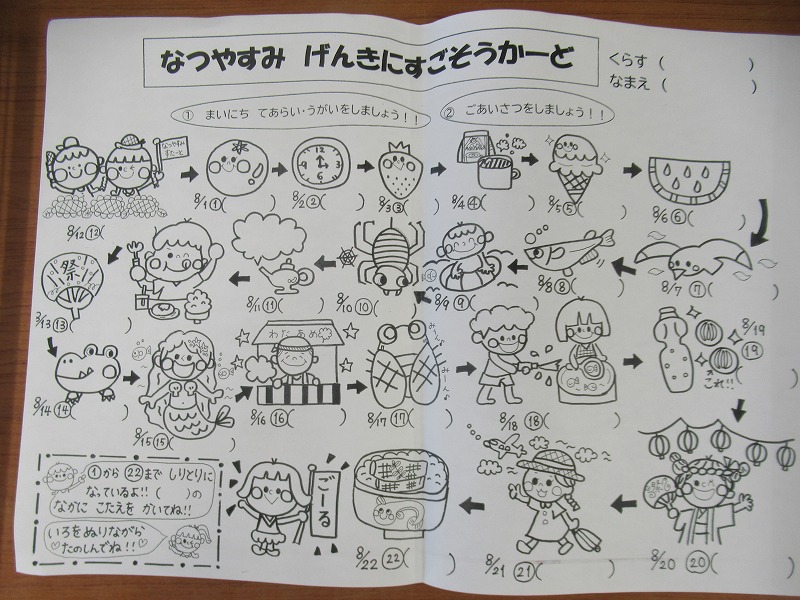 なつやすみ げんきにすごそうかーど
くらす (　　　)
なまえ (　　　)
① まいにち てあらい・うがいをしましょう!!
② ごあいさつをしましょう!!
なつやすみ
すたーと
8/1 ①(　　)
8/2 ②(　　)
8/3 ③(　　)
8/4 ④(　　)
8/5 ⑤(　　)
8/6 ⑥(　　)
8/7 ⑦(　　)
8/8 ⑧(　　)
8/9 ⑨(　　)
8/10 ⑩(　　)
8/11 ⑪(　　)
8/12 ⑫(　　)
祭
3/13 ⑬(　　)
8/14 ⑭(　　)
8/15 ⑮(　　)
わたあめ
8/16 ⑯(　　)
みーんみーん
8/17 ⑰(　　)
8/18 ⑱(　　)
8/19
⑲
これ!!
8/20 ⑳(　　)
8/21 ㉑(　　)
8/22 ㉒(　　)
ごーる
①から㉒まで しりとりに
なっているよ!! (　　)の
なかに こたえを かいてね!!
いろをぬりながら
♡たのしんでね!!♡